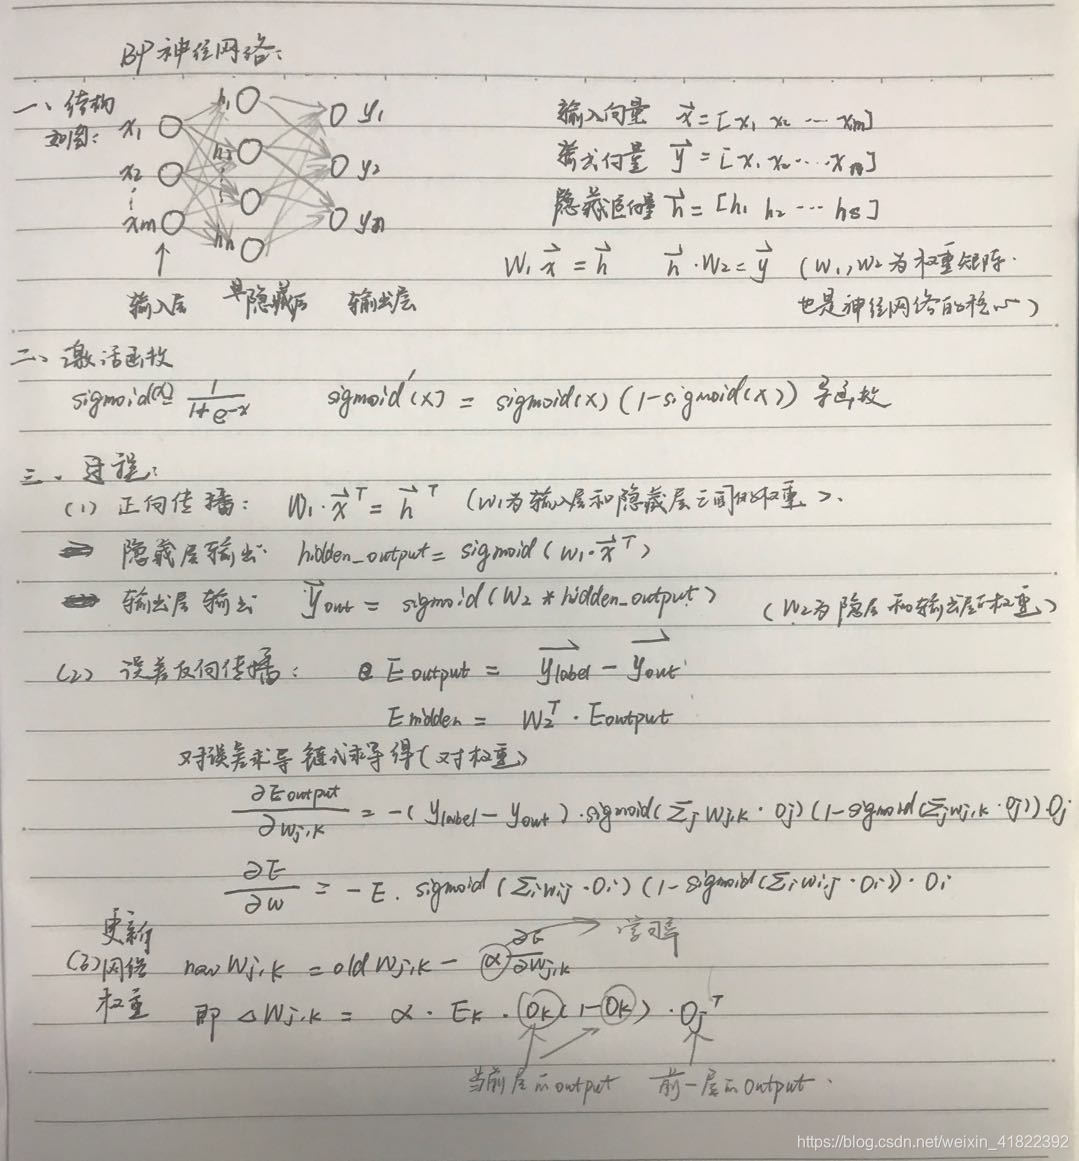 BP神经网络:
一、结构
如图:
h₁
x₁
y₁
输入向量 x⃗ = [x₁ x₂ ⋯ xm]
h₂
x₂
y₂
输出向量 y⃗ = [x₁ x₂ ⋯ xn]
⋮
xm
hn
yn
隐藏向量 h⃗ = [h₁ h₂ ⋯ hs]
W₁ x⃗ = h⃗ h⃗ · W₂ = y⃗ (W₁, W₂ 为权重矩阵.
输入层 隐藏层 输出层 也是神经网络的核心)
二、激活函数
sigmoid(x) = 1/(1+e^-x) sigmoid′(x) = sigmoid(x) (1-sigmoid(x)) 导函数
三、过程:
(1) 正向传播: W₁·x⃗ᵀ = h⃗ᵀ (W₁为输入层和隐藏层之间的权重).
隐藏层输出 hidden_output = sigmoid(W₁·x⃗ᵀ)
输出层输出 y⃗out = sigmoid(W₂ * hidden_output) (W₂为隐层和输出层的权重)
(2) 误差反向传播: Eoutput = ylabel - yout
Ehidden = W₂ᵀ · Eoutput
对误差求导链式求导得(对权重)
∂Eoutput/∂wj,k = -(ylabel - yout) · sigmoid(Σj wj,k · Oj) (1-sigmoid(Σj wj,k · Oj)) Oj
∂E/∂w = -E · sigmoid(Σi wij · Oi) (1-sigmoid(Σi wi,j · Oi)) · Oi
学习率
(3) 更新网络权重
new Wj,k = old Wj,k - α ∂E/∂Wj,k
即 △Wj,k = α · Ek · Ok (1-Ok) · Ojᵀ
当前层的output 前一层的output.
https://blog.csdn.net/weixin_41822392